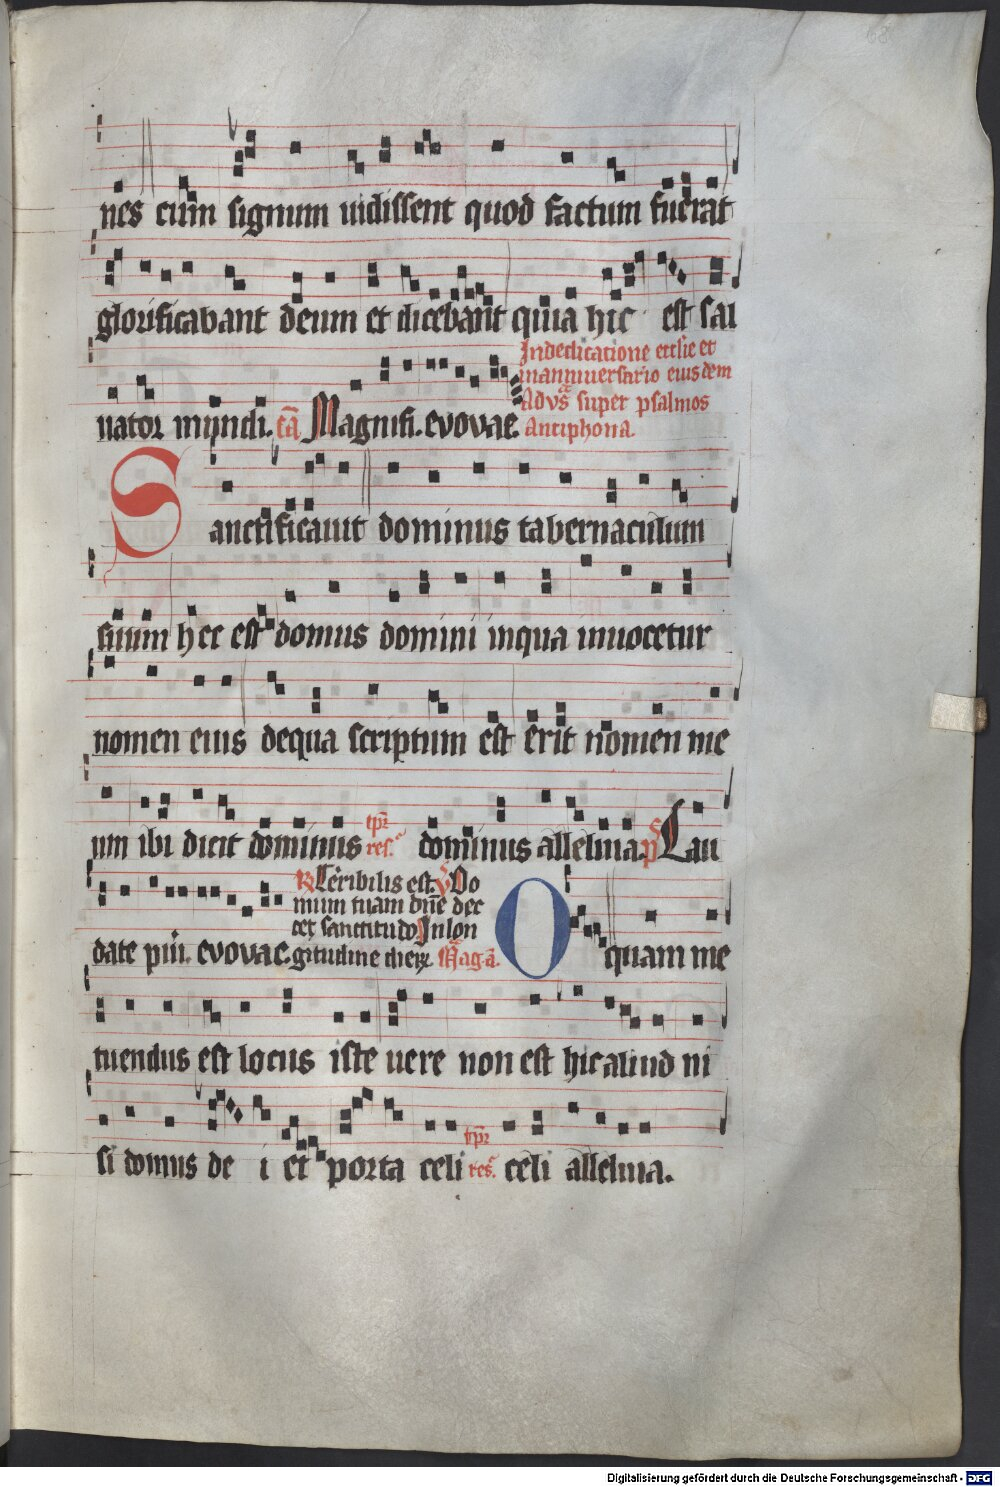 68
nes cum signum uidissent quod factum fuerat
glorificabant deum et dicebant quia hic est sal
uator mundi. Magnifi. evovae.
In dedicatione ecclsie et
in anniuersario eius dem
Ad vs̄ super psalmos
Antiphona.
Sanctificauit dominus tabernaculum
suum hec est domus domini in qua inuocetur
nomen eius de qua scriptum est erit nomen me
um ibi dicit dominus tp̄r res. dominus alleluia. ps Lau
date pūi. evovae.
R Terribilis est. V Do
mum tuam dn̄e dec
cet sanctitudo In lon
gitudine dieꝝ. Mag. a.
O quam me
tuendus est locus iste uere non est hic aliud ni
si domus de i et porta celi tp̄r res. celi alleluia.
Digitalisierung gefördert durch die Deutsche Forschungsgemeinschaft - DFG